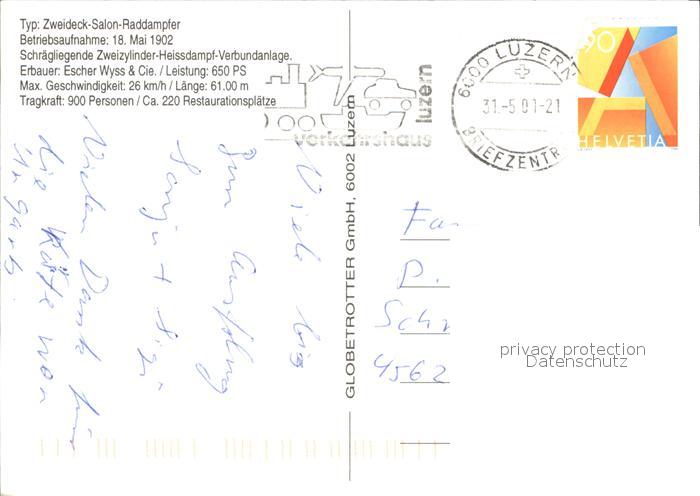 Typ: Zweideck-Salon-Raddampfer
Betriebsaufnahme: 18. Mai 1902
Schrägliegende Zweizylinder-Heissdampf-Verbundanlage.
Erbauer: Escher Wyss & Cie. / Leistung: 650 PS
Max. Geschwindigkeit: 26 km/h / Länge: 61.00 m
Tragkraft: 900 Personen / Ca. 220 Restaurationsplätze
luzern
verkehrshaus
6000 LUZERN
31.-5.01-21
BRIEFZENTR
90
A
HELVETIA
GLOBETROTTER GmbH, 6002 Luzern
Viele
zum Ausflug
Vielen Dank für
die Karte von
Fa
P.
Sch
4562
privacy protection
Datenschutz